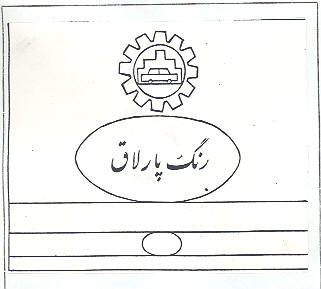 رنگ پارلاق